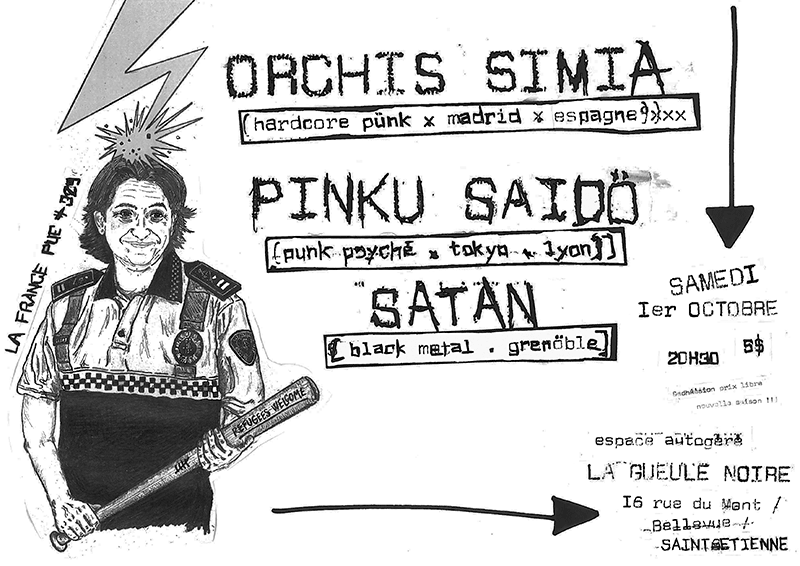 LA FRANCE PUE # 329
ORCHIS SIMIA
(hardcore pünk x madrid x espagne)xxx
PINKU SAIDÖ
(punk psyché x tokyo x lyon)]
SATAN
[ black metal . grenöble]
SAMEDI
1er OCTOBRE
20H30 5$
prix libre
nouvelle saison !!!
espace autogéré
LA GUEULE NOIRE
16 rue du Mont /
Bellevue /
SAINT ETIENNE
REFUGEES WELCOME